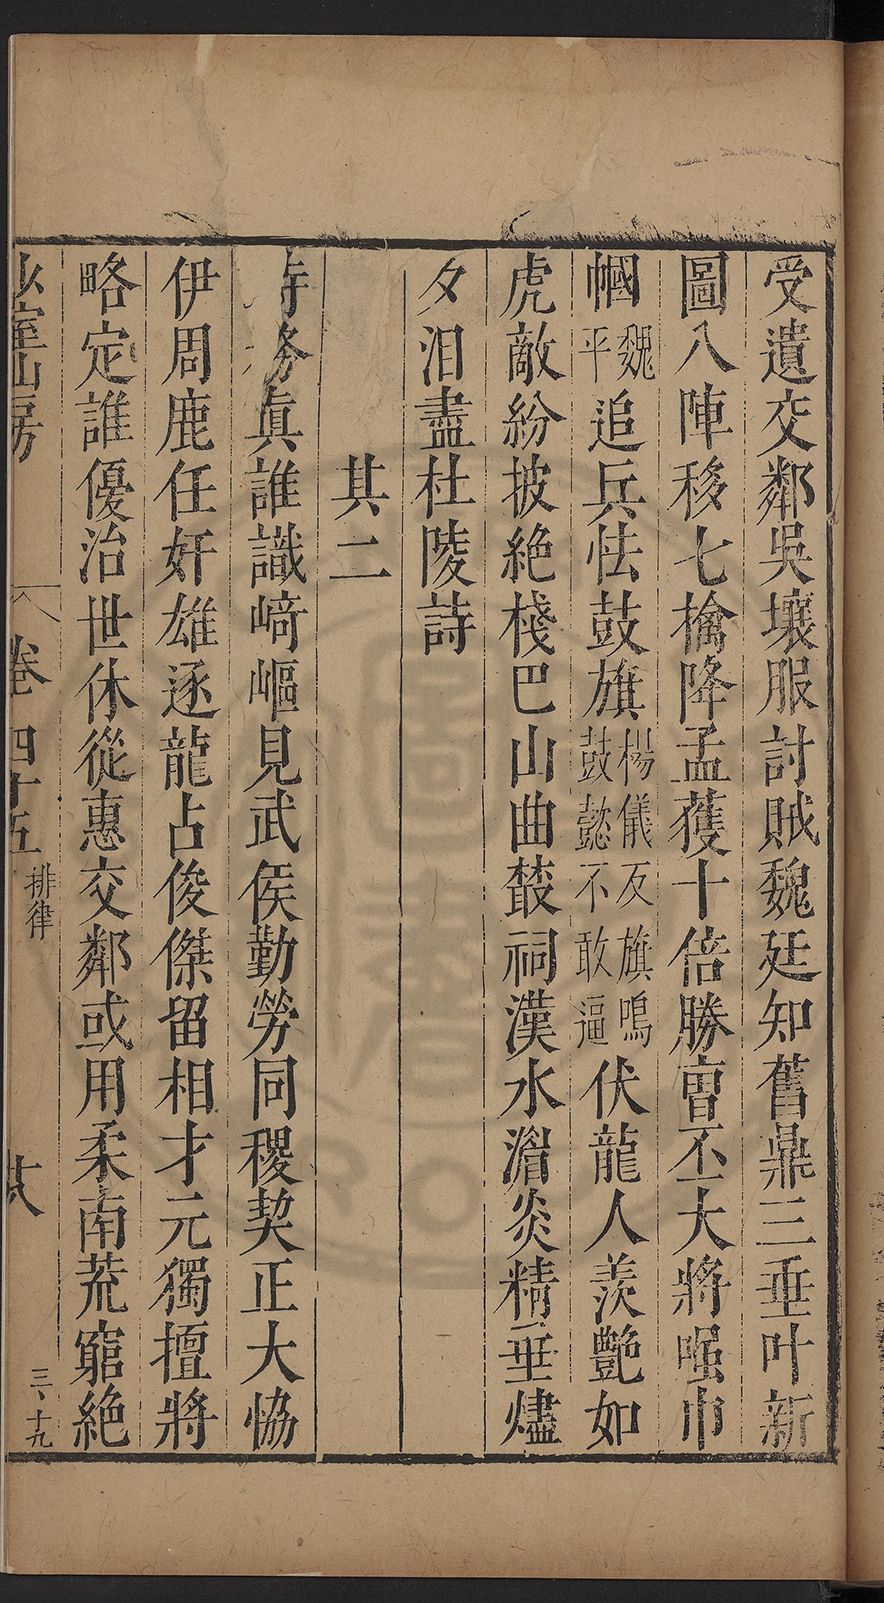 受遺交鄰吳壤服討賊魏廷知舊鼎三垂叶新
圖八陣移七擒降孟獲十倍勝曹丕大將嗤巾
幗魏平追兵怯鼓旗楊儀反旗鳴鼓懿不敢逼伏龍人羨艷如
虎敵紛披絕棧巴山曲藂祠漢水湄炎精垂燼
夕泪盡杜陵詩
其二
時務眞誰識崎嶇見武侯勤勞同稷契正大恊
伊周鹿任奸雄逐龍占俊傑留相才元獨擅將
略定誰優治世休從惠交鄰或用柔南荒窮絕
少室山房 卷四十五 排律 廿八 三、十九